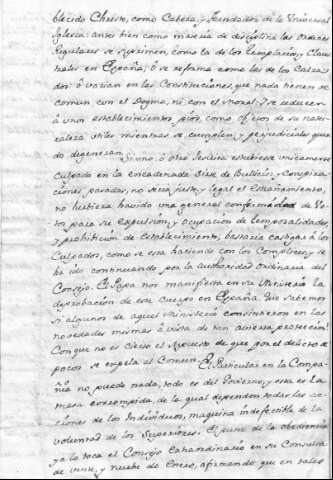 blecido Christo, como Cabeza, y Fundador de la Universal
Iglesia: antes bien como materia de disciplina las Ordenes
Regulares se suprimen, como la de los Templarios, y Claus
trales en España; ò se reforma como las de los Calza
dos ò varían en las Constituciones, que nada tienen de
comun con el Dogma, ni con el Moral. Y se reducen
à unos establecimientos píos, como de su natu
raleza utiles mientras se cumplen, y perjudiciales quan
do degeneran.
Si uno, ò otro Jesuita estubiese unicamente
culpado en la encadenada série de Bullicios, y Conspira
ciones pasadas, no sería justo, y legal el Estrañamiento,
no hubiera havido una general conformidad de Vo
tos para su Expulsion, y Ocupacion de Temporalidades,
y prohibicion de establecimiento, bastaria castigar à los
Culpados, como se esta haciendo con los Complices, y se
ha ido continuando por la authoridad ordinaria del
Consejo. El Papa nos manifiesta en su Ministerio la
depravacion de este cuerpo en España. Que sabemos
si algunos de aquel Ministerio consintieron en las
novedades mismas à vista de tan abierta proteccion.
Con que no es cierto el supuesto de que por el delito de
pocos se expela al Comun. El Particular en la Compa
ñia no puede nada, todo es del Govierno, y esta es la
masa corrompida, de la qual dependen todas las ac
ciones de los Individuos, maquina indefectible de la
voluntad de los Superiores. El punto de la obediencia
ya la toca el Consejo Extraordinario en su Consulta
de veinte, y nuebe de Enero, afirmando, que en tales